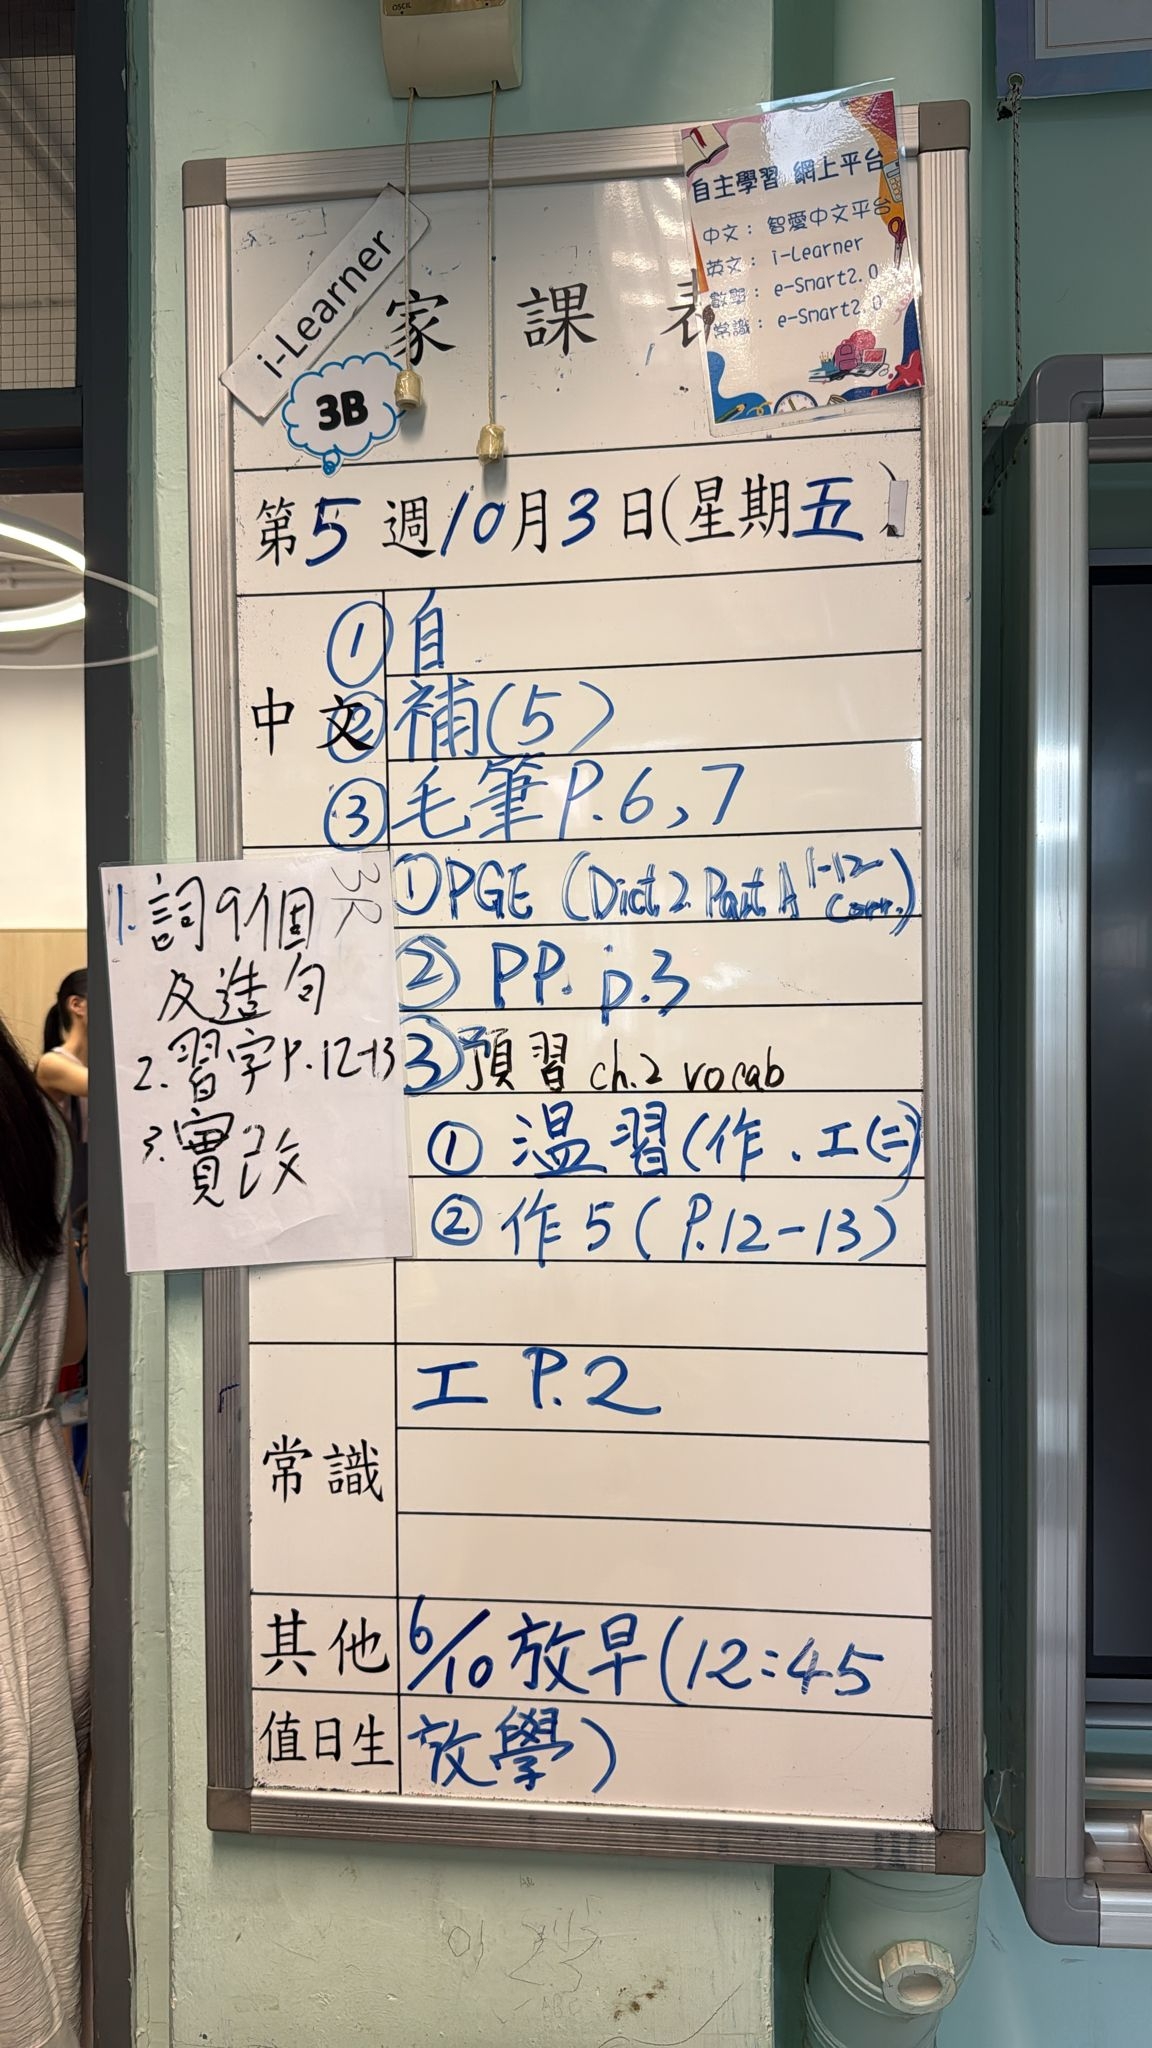 OSCIL
自主學習 網上平台
中文：智愛中文平台
英文：i-Learner
數學：e-Smart2.0
常識：e-Smart2.0
i-Learner
家課表
3B
第5週10月3日(星期五)
中文
①自
②補(5)
③毛筆P.6,7
①PGE (Dict.2 Part A 1-12 Corr.)
②PP. p.3
③預習 ch.2 vocab
3R
1.詞9個
及造句
2.習字P.12-13
3.實改
①溫習(作、工(二))
②作5(P.12-13)
常識
工 P.2
其他
6/10放早(12:45
值日生
放學)